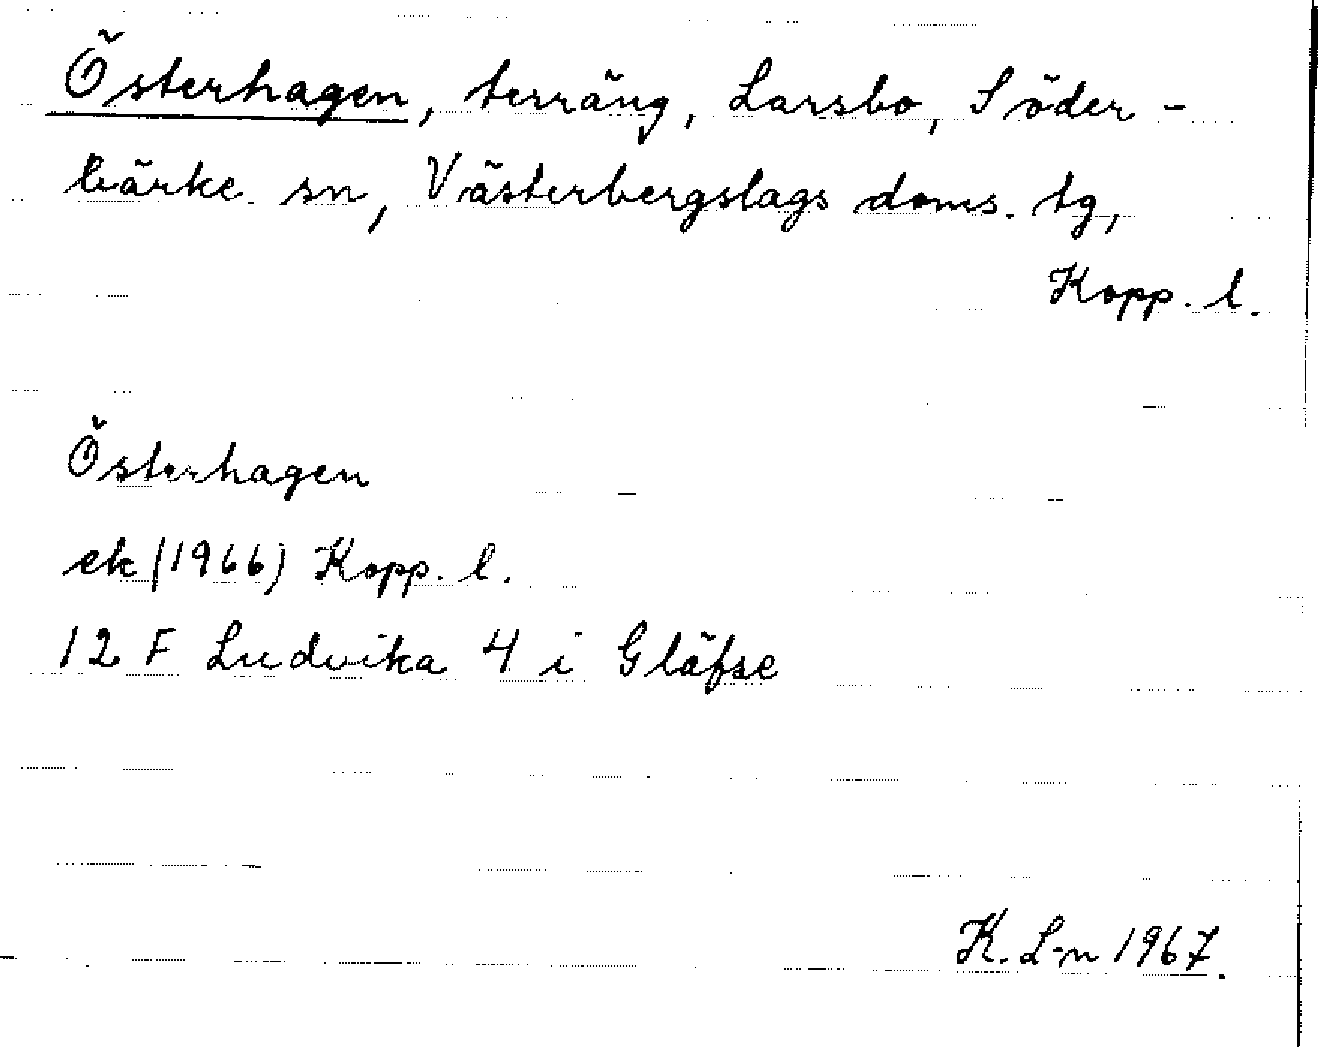 Österhagen, terräng, Larsbo, Söder-
bärke sn, Västerbergslags doms. tg,
Kopp. l.
Österhagen
ek (1966) Kopp. l.
12 F Ludvika 4 i Gläfse
K. L-n 1967.